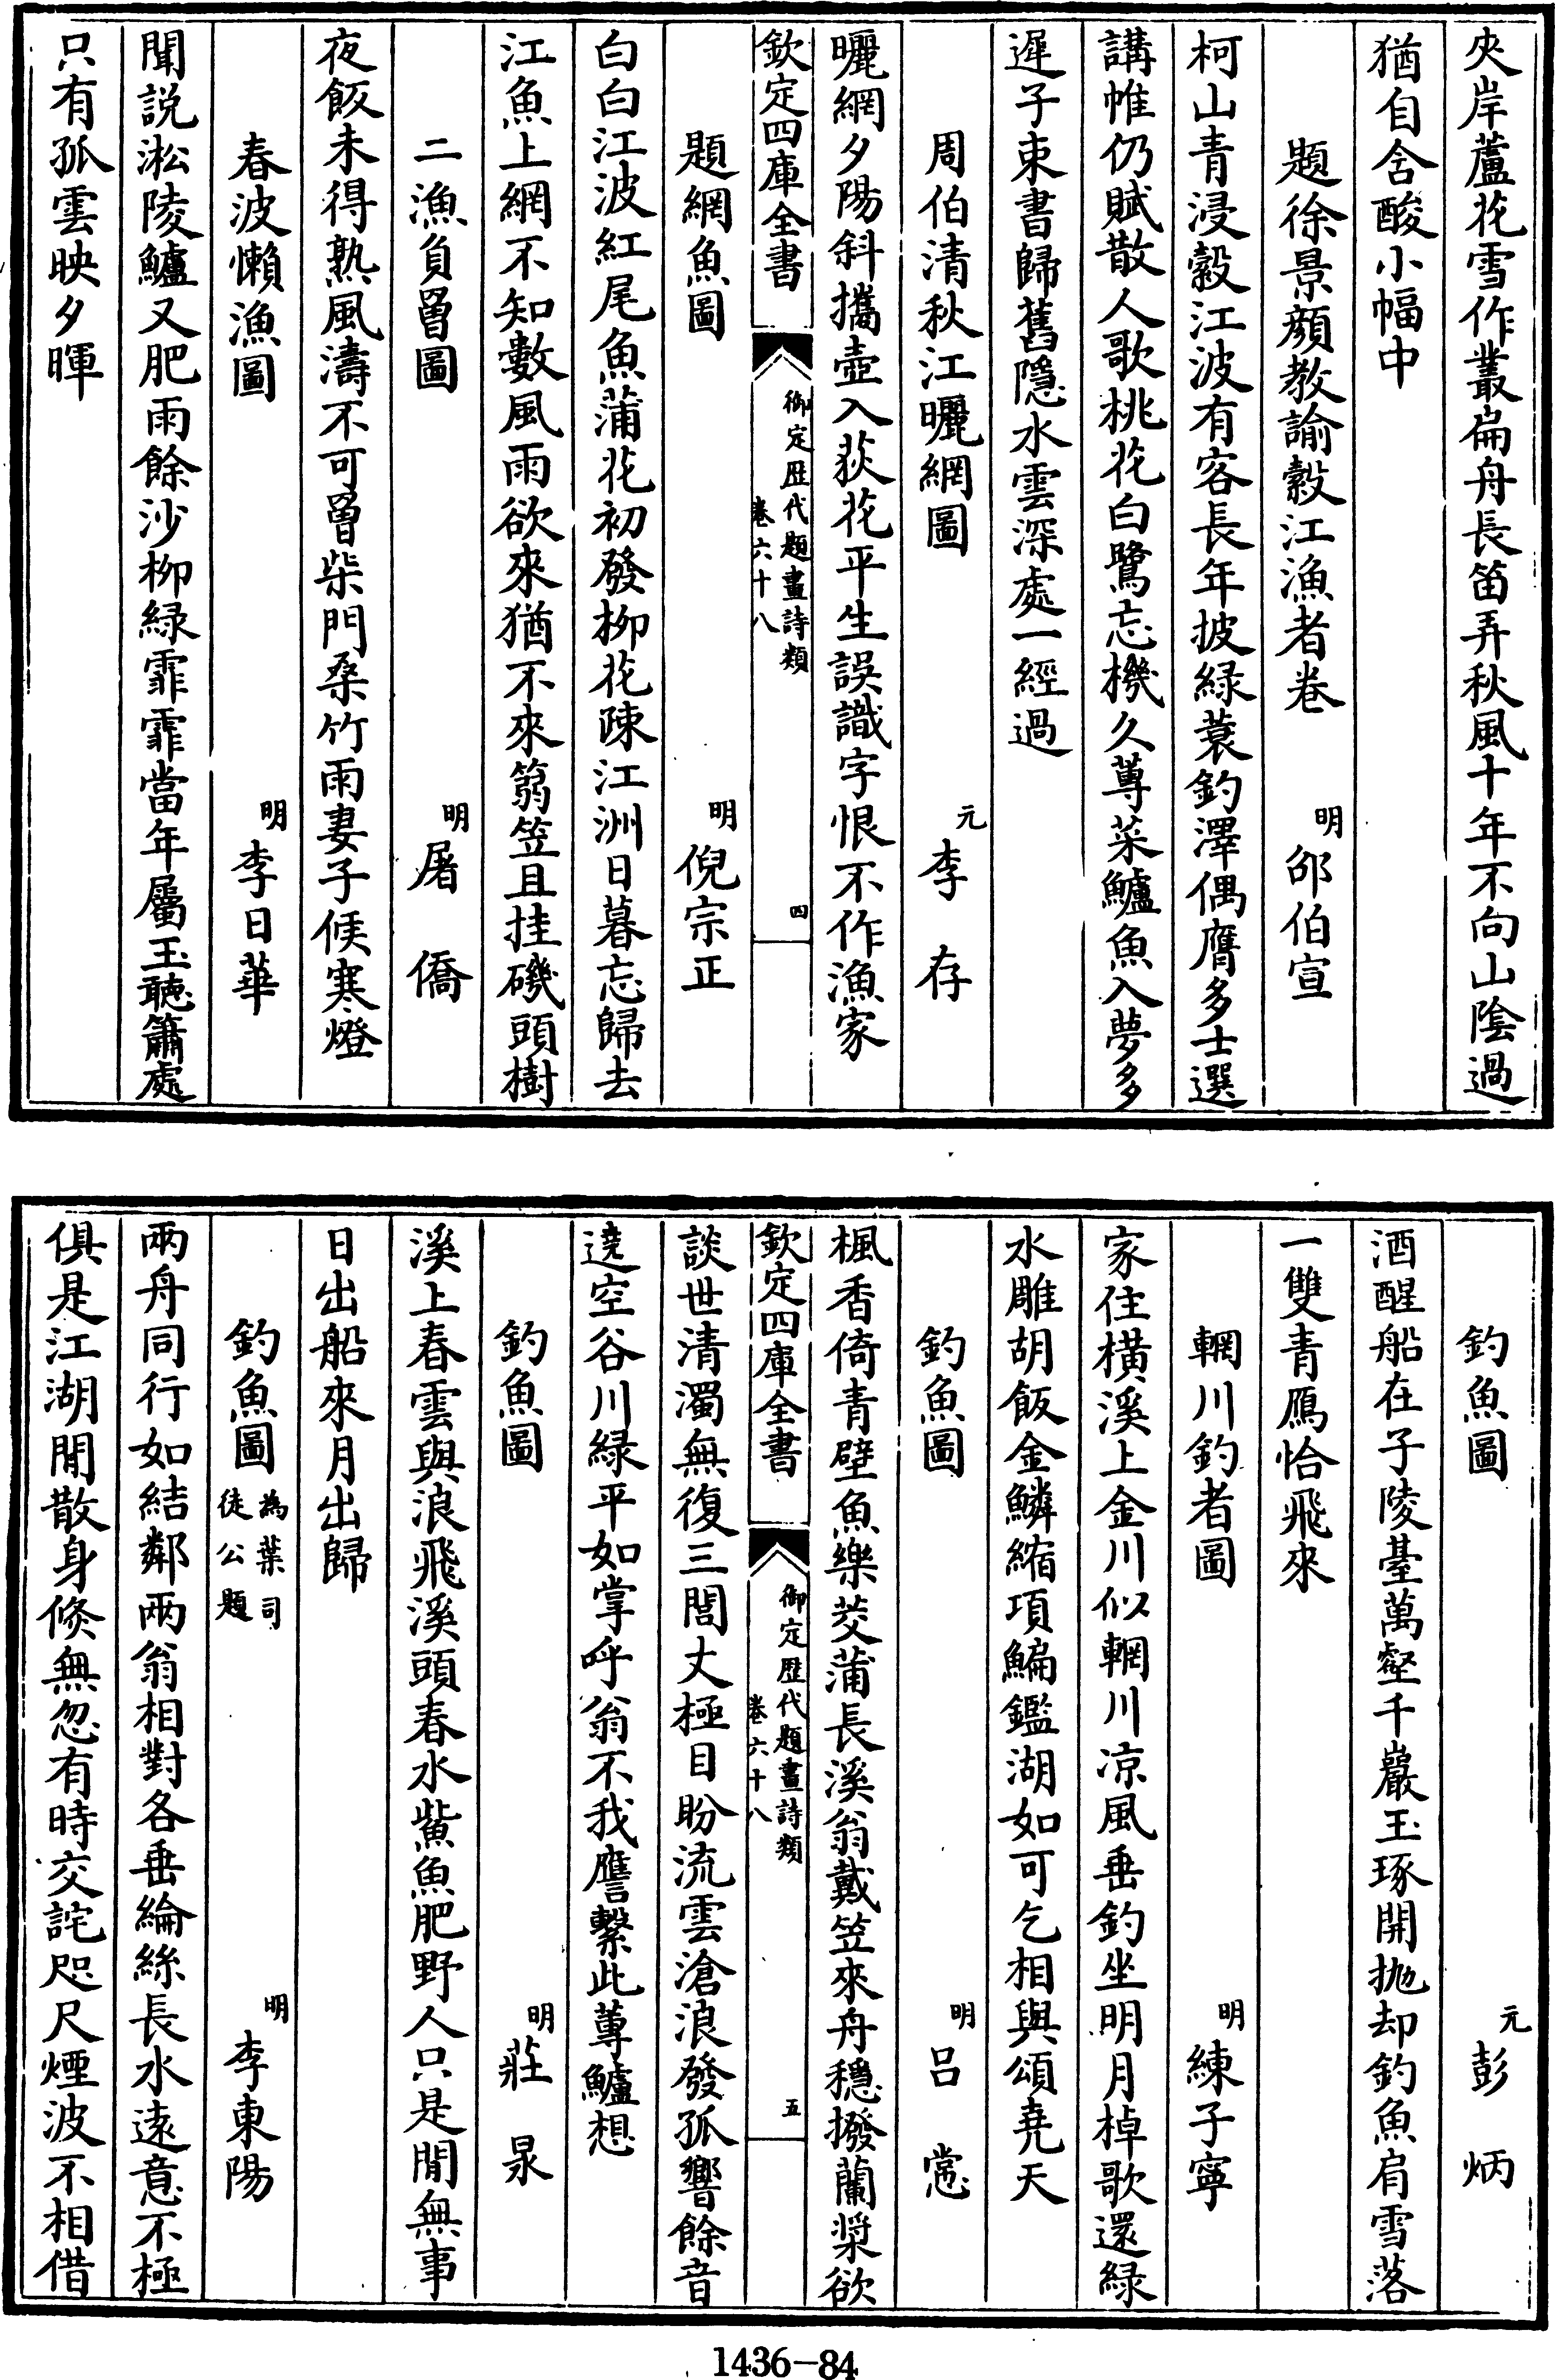 夾岸蘆花雪作叢扁舟長笛弄秋風十年不向山陰過
猶自含酸小幅中
題徐景顔教諭縠江漁者卷 明 邵伯宣
柯山青浸縠江波有客長年披緑蓑釣澤偶膺多士選
講帷仍賦散人歌桃花白鷺忘機久蓴菜鱸魚入夢多
遲子束書歸舊隱水雲深處一經過
周伯清秋江曬網圖 元 李存
曬網夕陽斜攜壺入荻花平生誤識字恨不作漁家
欽定四庫全書 御定歴代題畫詩類 卷六十八 四
題網魚圖 明 倪宗正
白白江波紅尾魚蒲花初發柳花疎江洲日暮忘歸去
江魚上網不知數風雨欲來猶不來篛笠且挂磯頭樹
二漁負罾圖 明 屠僑
夜飯未得熟風濤不可罾柴門桑竹雨妻子候寒燈
春波懶漁圖 明 李日華
聞説淞陵鱸又肥雨餘沙柳緑霏霏當年屬玉聴簫處
只有孤雲映夕暉
釣魚圖 元 彭炳
酒醒船在子陵臺萬壑千巖玉琢開抛却釣魚肩雪落
一雙青鴈恰飛來
輞川釣者圖 明 練子寧
家住橫溪上金川似輞川凉風垂釣坐明月棹歌還緑
水雕胡飯金鱗縮項鯿鑑湖如可乞相與頌堯天
釣魚圖 明 呂㦂
楓香倚青壁魚樂茭蒲長溪翁戴笠來舟穩撥蘭槳欲
欽定四庫全書 御定歴代題畫詩類 卷六十八 五
談世清濁無復三閭丈極目盼流雲滄浪發孤響餘音
遶空谷川緑平如掌呼翁不我譍繫此蓴鱸想
釣魚圖 明 莊㫤
溪上春雲與浪飛溪頭春水鮆魚肥野人只是閒無事
日出船來月出歸
釣魚圖 為葉司徒公題 明 李東陽
兩舟同行如結鄰兩翁相對各垂綸絲長水逺意不極
俱是江湖閒散身倐無忽有時交詫咫尺煙波不相借
1436-84